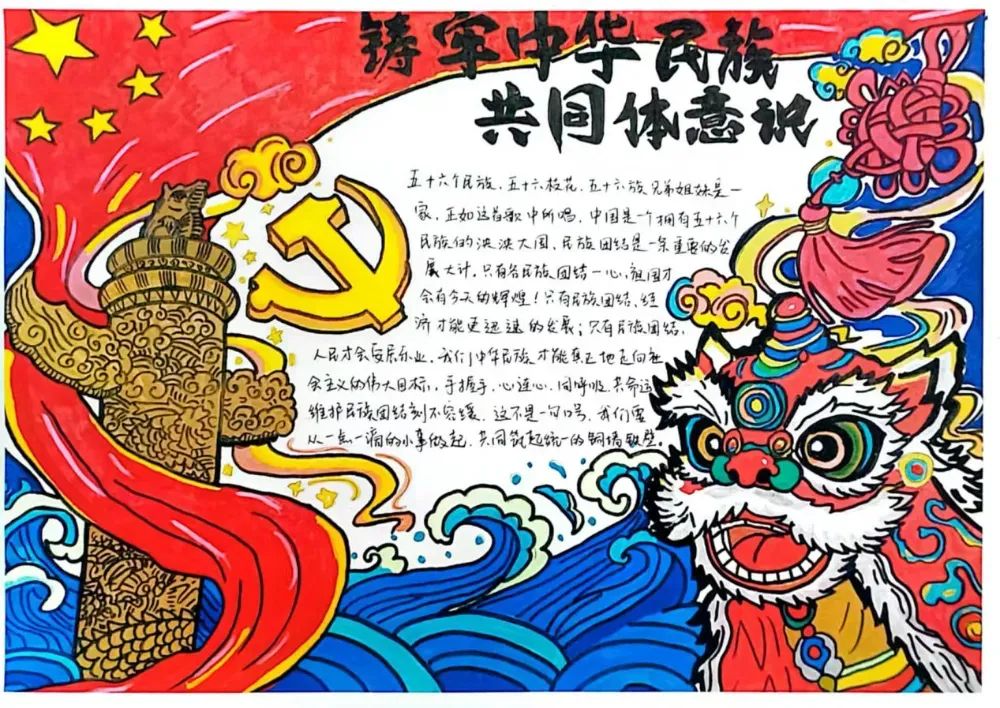 铸牢中华民族
共同体意识
五十六个民族，五十六枝花，五十六族兄弟姐妹是一
家，正如这首歌中所唱，中国是一个拥有五十六个
民族的泱泱大国，民族团结是一条重要的发
展大计，只有各民族团结一心，祖国才
会有今天的辉煌！只有民族团结，经
济才能更迅速的发展；只有民族团结，
人民才会安居乐业，我们中华民族才能真正地走向社
会主义的伟大目标，手握手，心连心，同呼吸，共命运
维护民族团结刻不容缓，这不是一句口号，我们要
从一点一滴的小事做起，共同筑起统一的铜墙铁壁。